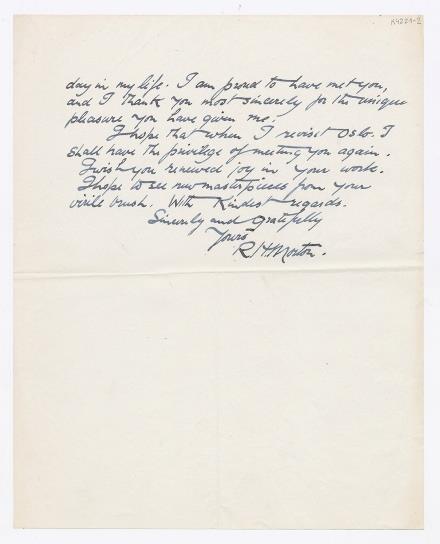 K4221-2
day in my life. I am proud to have met you,
and I thank you most sincerely for the unique
pleasure you have given me.
I hope that when I revisit Oslo. I
shall have the privilege of meeting you again.
I wish you renewed joy in your work.
I hope to see new masterpieces from your
virile brush. With Kindest regards.
Sincerely and gratefully
Yours
R H Morton.